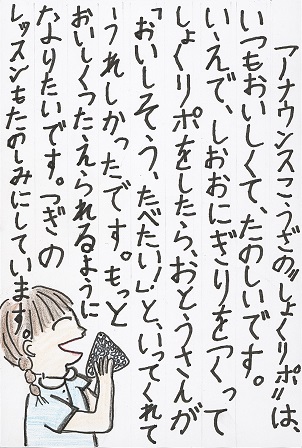 アナウンスこうざの“しょくリポ”は、
いつもおいしくて、たのしいです。
いえで、しおおにぎりをつくって
しょくリポをしたら、おとうさんが
「おいしそう、たべたい！」と、いってくれて
うれしかったです。もっと
おいしくつたえられるように
なりたいです。つぎの
レッスンもたのしみにしています。